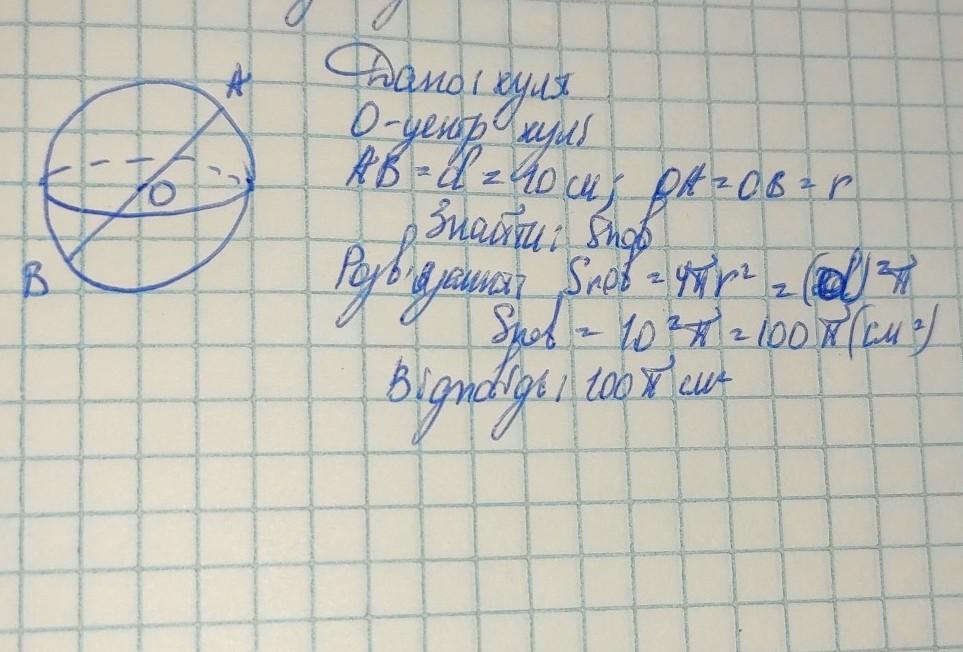 Дано: куля
О-центр кулі
A
AB = d = 10 см; OA = OB = r
O
Знайти: Sпов
B
Розв'язання: Sпов = 4πr² = (d)²π
Sпов = 10²π = 100π (см²)
Відповідь: 100π см²